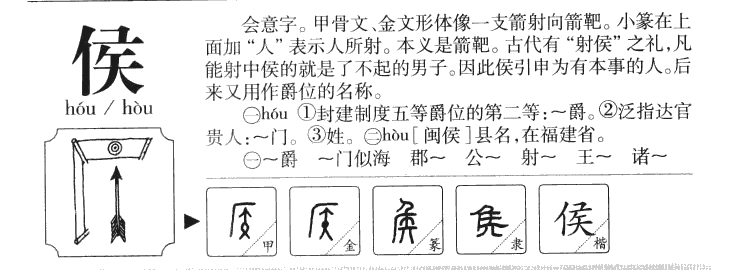 侯
hóu / hòu
会意字。甲骨文、金文形体像一支箭射向箭靶。小篆在上
面加“人”表示人所射。本义是箭靶。古代有“射侯”之礼,凡
能射中侯的就是了不起的男子。因此侯引申为有本事的人。后
来又用作爵位的名称。
㊀hóu ①封建制度五等爵位的第二等:～爵。②泛指达官
贵人:～门。③姓。㊁hòu[闽侯]县名,在福建省。
㊀～爵 ～门似海 郡～ 公～ 射～ 王～ 诸～
甲 金 篆 隶 侯 楷